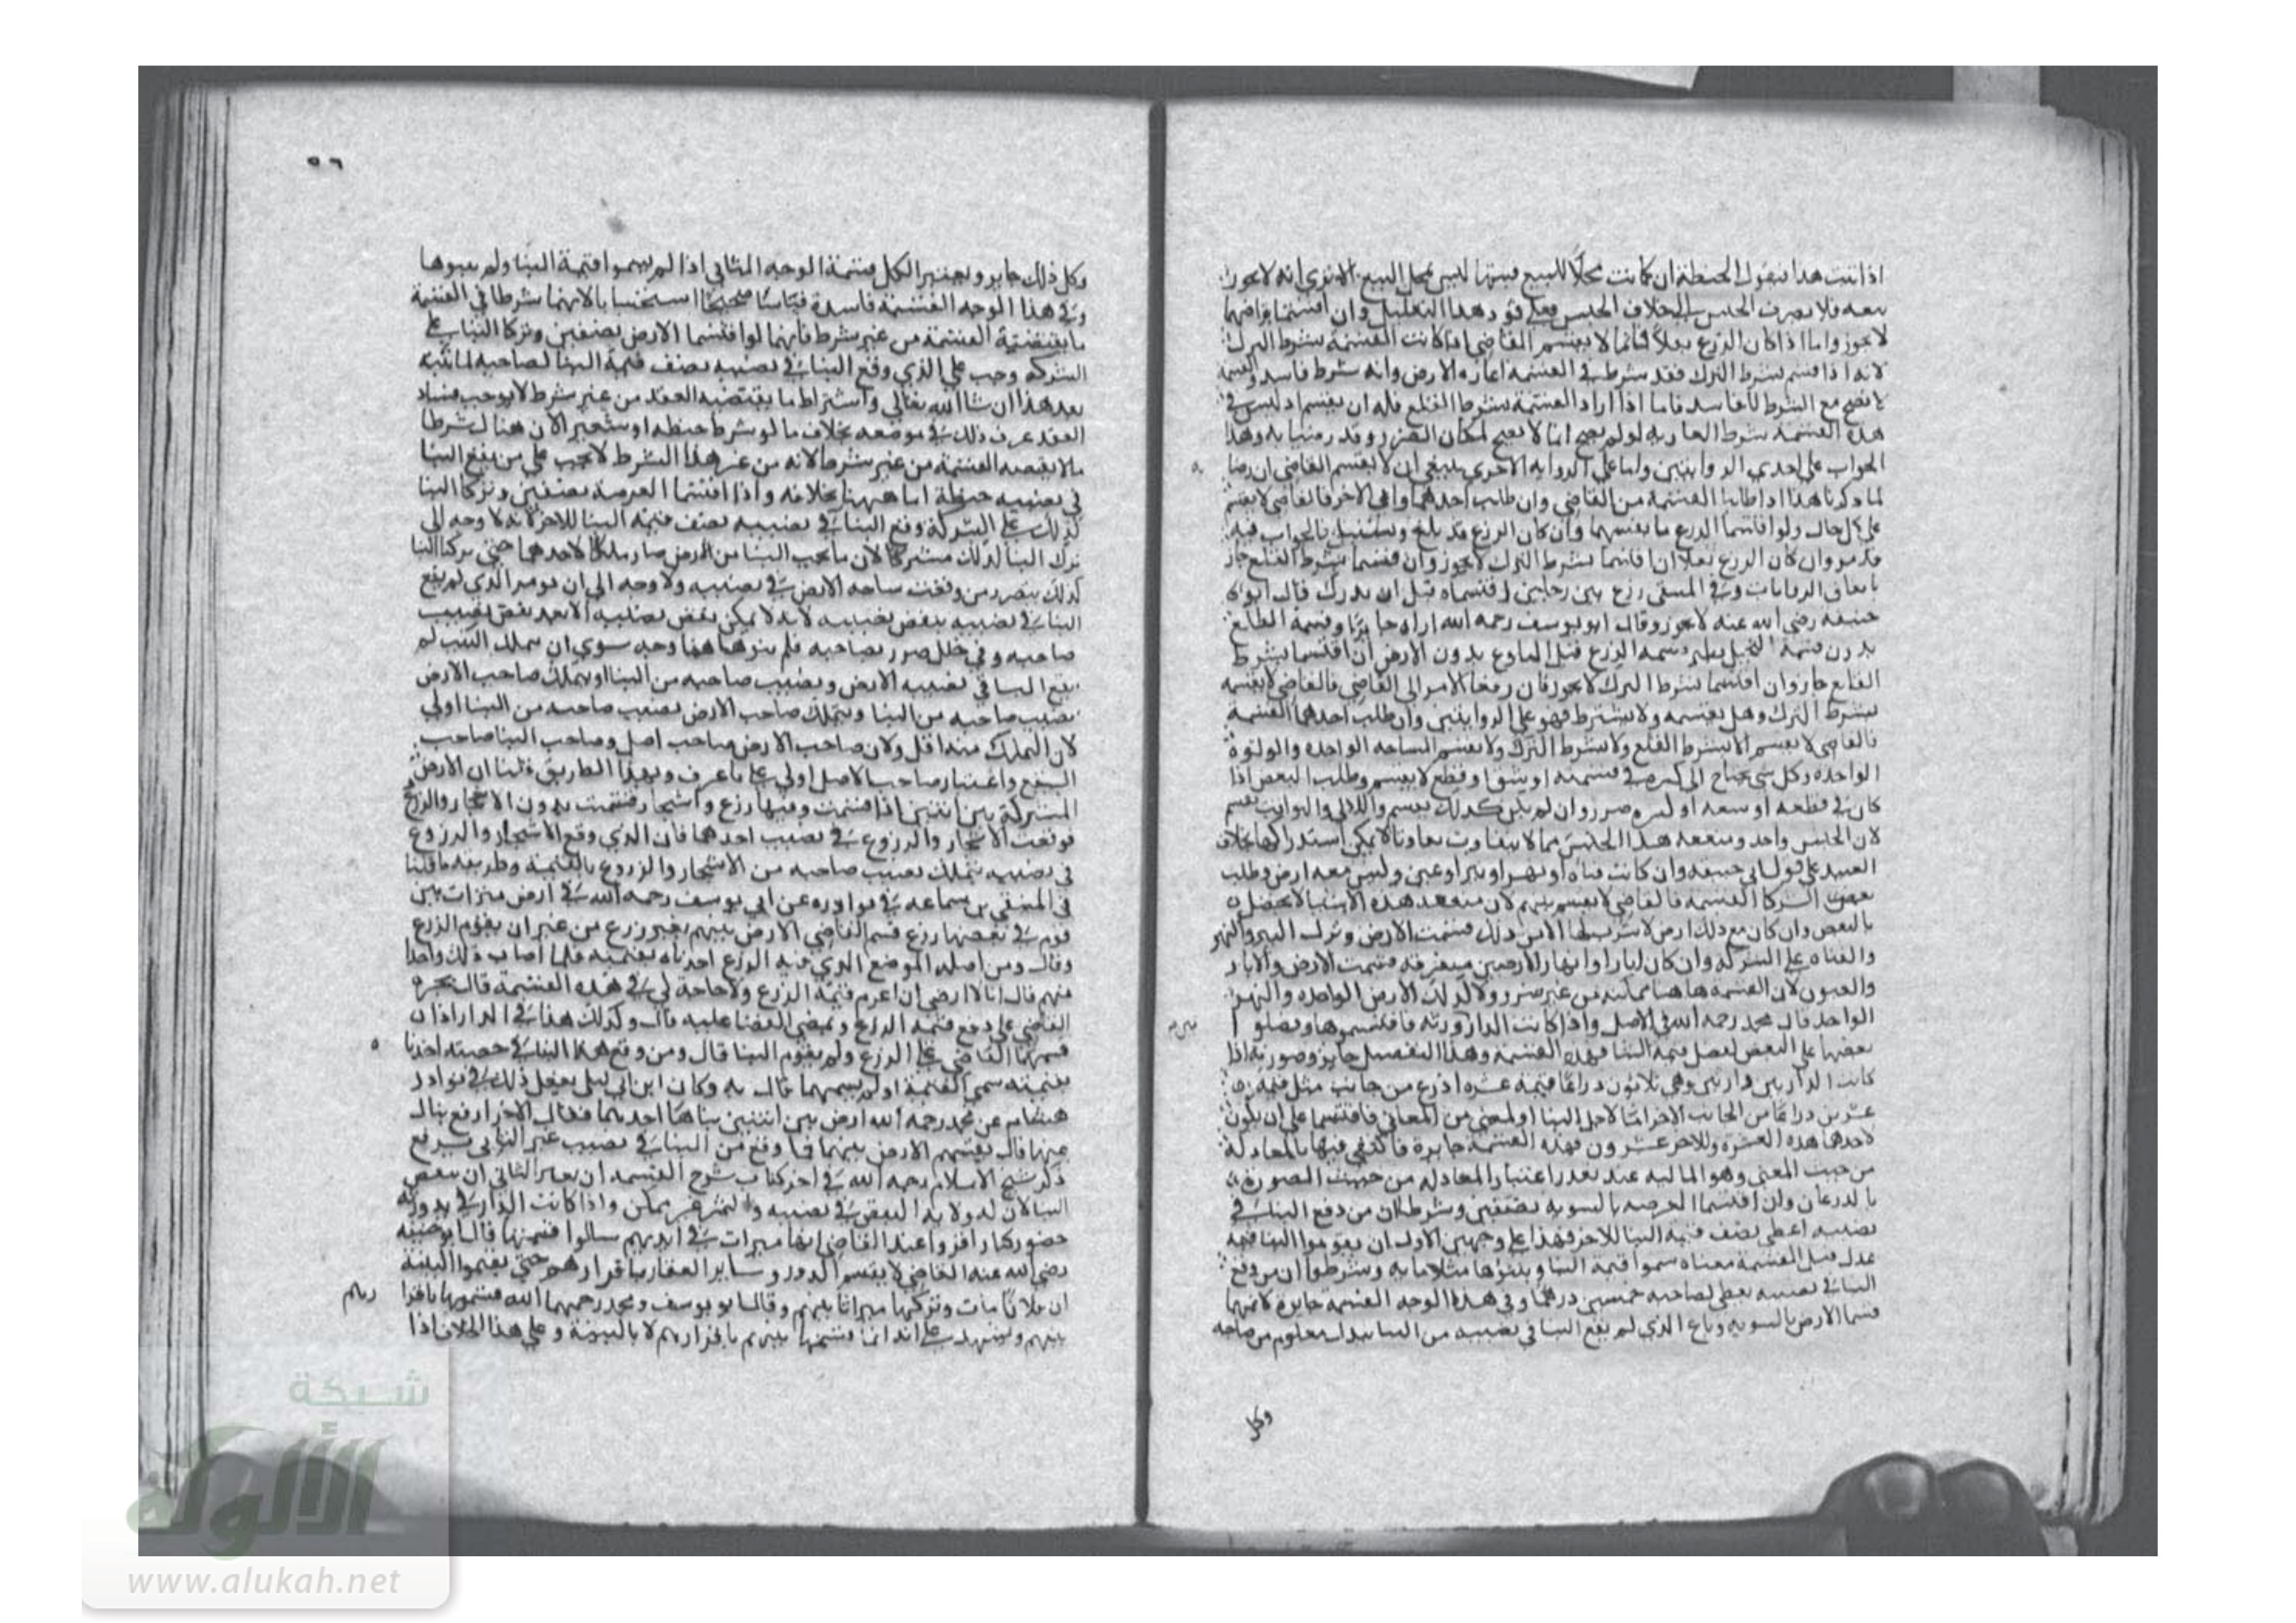 اذا ثبت هذا فنقول الحنطة ان كانت محلا للبيع فبيتها ليس محل البيع الا ترى انه لا يجوز
بيعه فلا يصرف الجنس الى خلاف الجنس فعلى قود هذا التعليل وان اقتسما بتراضيهما
لا يجوز واما اذا كان الزرع بقلا فانما لا يقسم القاضي اذا كانت القسمة بشرط الترك
لانه اذا قسم بشرط الترك فقد شرط في القسمة اعارة الارض وانه شرط فاسد والقسمة
لا تصح مع الشرط الفاسد فاما اذا اراد القسمة بشرط القلع فله ان يقسم اذ ليس في
هذه القسمة شرط العارية لو لم يصح انما لا يصح لمكان الضرر وقد رضيا به وهذا
الجواب على احدى الروايتين واما على الرواية الاخرى ينبغي ان لا يقسم القاضي ان رضيا
لما ذكرنا هذا اذا طلبا القسمة من القاضي وان طلب احدهما وابى الاخر فالقاضي لا يقسم
على كل حال ولو اقتسما الزرع بانفسهما وان كان الزرع قد بلغ وسنبل فالجواب فيه
قد مر وان كان الزرع بقلا ان اقتسما بشرط الترك لا يجوز وان قسما بشرط القلع جاز
باتفاق الروايات وفي المنتقى زرع بين رجلين اقتسماه قبل ان يدرك قال ابو
حنيفة رضي الله عنه لا يجوز وقال ابو يوسف رحمه الله اراه جايزا وقسمة الطلع
بدون قسمة النخيل نظير قسمة الزرع قبل البلوغ بدون الارض ان اقتسما بشرط
القلع جاز وان اقتسما بشرط الترك لا يجوز فان رفعا الامر الى القاضي فالقاضي لا يقسمه
بشرط الترك وهل يقسمه ولا يشترط فهو على الروايتين وان طلب احدهما القسمة
فالقاضي لا يقسم لا بشرط القلع ولا بشرط الترك ولا يقسم الساحه الواحده واللولوة
الواحده وكل شي يحتاج الى كسره في قسمته او شق او قطع لا يقسم وطلب البعض اذا
كان في قطعه او شقه او كسره ضرر وان لم يكن كذلك يقسم واللالي واليواقيت يقسم
لان الجنس واحد ومنفعة هذا الجنس مما لا يتفاوت تفاوتا لا يمكن استدراكها بخلاف
العبيد على قول ابي حنيفه وان كانت قناه او نهر او بير او عين وليس معه ارض وطلب
بعض الشركا القسمة فالقاضي لا يقسم بينهم لان منفعة هذه الاشيا لا يحصل
بالبعض وان كان مع ذلك ارض لا شرب لها الا من ذلك قسمت الارض وترك البير والنهر
والقناه على الشركه وان كان ابارا او انهارا لارضين متفرقه قسمت الارض والابار
والعيون لان القسمة هاهنا ممكنه من غير ضرر ولا كذلك الارض الواحده والنهر
الواحد قال محمد رحمه الله في الاصل واذا كانت الدار ورثه فاقتسموها وفضلوا
بعضها على البعض لفضل قيمة البنا فهذه القسمة وهذا التفضيل جايز وصورته اذا
كانت الدار بين وارثين وهي ثلاثون ذراعا قيمة عشره اذرع من جانب مثل قيمة
عشرين ذراعا من الجانب الاخر اما لاجل البنا او لمعنى من المعاني فاقتسما على ان يكون
لاحدهما هذه العشرة وللاخر عشرون فهذه القسمة جايزة فاكتفي فيها بالمعادلة
من حيث المعنى وهو المالية عند تعذر اعتبار المعادله من حيث الصورة
بالذرعان وان اقتسما العرصه بالسويه نصفين وشرطا ان من وقع البنا في
نصيبه اعطى نصف قيمة البنا للاخر فهذا على وجهين الاول ان يقوموا البنا قيمة
عدل قبل القسمة معناه سموا قيمة البنا وبلغوها مثلا مايه وشرطوا ان من وقع
البنا في نصيبه يعطي لصاحبه خمسين درهما وفي هذا الوجه القسمة جايزة لانهما
قسما الارض بالسويه وباع الذي لم يقع البنا في نصيبه من البنا ببدل معلوم من صاحبه
وكل
٥٦
وكل ذلك جايز ويعتبر الكل قسمة الوجه الثاني اذا لم يسموا قيمة البنا ولم يعينوها
وفي هذا الوجه القسمة فاسدة قياسا صحيحا استحسانا لانهما شرطا في القسمة
ما يقتضيه القسمة من غير شرط فانهما لو اقتسما الارض نصفين وتركا البنا على
الشركه وجب على الذي وقع البنا في نصيبه نصف قيمة البنا لصاحبه لما نبينه
بعد هذا ان شا الله تعالى واشتراط ما يقتضيه العقد من غير شرط لا يوجب فساد
العقد عرف ذلك في موضعه بخلاف ما لو شرط حنطه او شعير لان هناك شرطا
ما لا يقتضيه القسمة من غير شرط لانه من غير هذا الشرط لا يجب على من يقع البنا
في نصيبه حنطة اما ههنا بخلافه واذا اقتسما العرصة نصفين وتركا البنا
كذلك على الشركة وقع البنا في نصيبه نصف قيمة البنا للاخر لانه لا وجه الى
ترك البنا كذلك مشتركا لان ما تحت البنا من الارض صار ملكا لاحدهما حتى تركنا البنا
كذلك يتضرر من وقعت ساحه الارض في نصيبه ولا وجه الى ان يومر الذي لم يقع
البنا في نصيبه بنقض نصيبه لانه لا يمكن نقض نصيبه الا بعد نقض نصيب
صاحبه وفي ذلك ضرر بصاحبه فلم يبق هاهنا وجه سوى ان يتملك الذي لم
يقع البنا في نصيبه الارض ونصيب صاحبه من البنا او يتملك صاحب الارض
نصيب صاحبه من البنا وتملك صاحب الارض نصيب صاحبه من البنا اولى
لان التملك منه اقل ولان صاحب الارض صاحب اصل وصاحب البنا صاحب
التبع واعتبار صاحب الاصل اولى على ما عرف وبهذا الطريق قلنا ان الارض
المشتركة بين اثنين اذا قسمت وفيها زرع واشجار وقسمت بدون الاشجار والزرع
فوقعت الاشجار والزروع في نصيب احدهما فان الذي وقع الاشجار والزروع
في نصيبه يتملك نصيب صاحبه من الاشجار والزروع بالقيمة وطريقه ما قلنا
في المنتقى بن سماعه في نوادره عن ابي يوسف رحمه الله في ارض ميراث بين
قوم في بعضها زرع قسم القاضي الارض بينهم بغير زرع من غير ان يقوم الزرع
وقال ومن اصابه الموضع الذي فيه الزرع اخذناه بقيمته فلما اصاب ذلك واحدا
منهم قال انا لا ارضى ان اغرم قيمة الزرع ولا حاجة لي في هذه القسمة قال يجبره
القاضي على دفع قيمة الزرع ويمضي القضا عليه قال وكذلك هذا في الدار اذا
قسمها القاضي على الذرع ولم يقوم البنا قال ومن وقع هذا البنا في حصته اخذنا
بقيمته سمى القيمة او لم يسمها قال به وكان ابن ابي ليلى يفعل ذلك في نوادر
هشام عن محمد رحمه الله ارض بين اثنين بناها احدهما فقال الاخر ارفع بناك
عنها قال يقسم الارض بينهما فما وقع من البنا في نصيب غير الباني يرفع
ذكر شيخ الاسلام رحمه الله في اخر كتاب شرح القسمه ان لغير الباني ان ينقض
البنا لان له ولاية النقض في نصيبه والتميز غير ممكن واذا كانت الدار في يد ورثه
حضور كبار اقروا عند القاضي انها ميراث في ايديهم سالوا قسمتها قال ابو حنيفه
رضي الله عنه القاضي لا يقسم الدور وساير العقار باقرارهم حتى يقيموا البينة
ان فلانا مات وتركها ميراثا بينهم وقال ابو يوسف ومحمد رحمهما الله قسمتها باقرا رهم
بينهم ويشهد على انه انما قسمها بينهم باقرارهم لا بالبينة وعلى هذا الخلاف اذا
شبكة
الألوكة
www.alukah.net